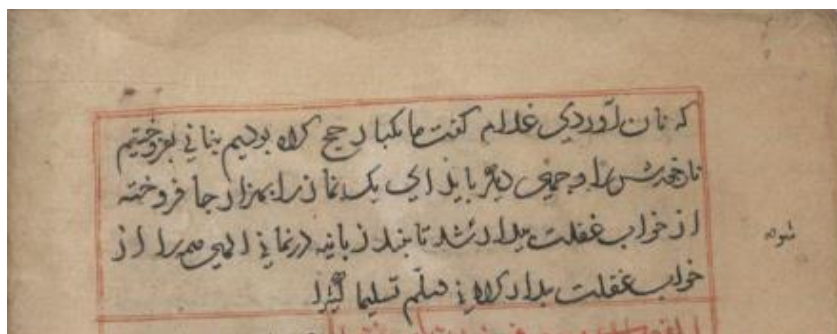 که نان آوردی غلام گفت ما یکبار حج کرده بودیم بنانی بفروختیم
را و جمعی دیگر باید ای یک نماز را بهزار جا فروخته
از خواب غفلت بیدار شد تا بند زبانیه در نمانی الهی همه را از
خواب غفلت بیدار کردانی و سلم تسلیما کثیرا
شوم